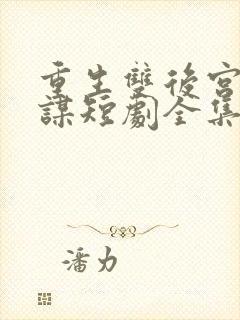 重生雙後宮
謀短劇全集
潘力